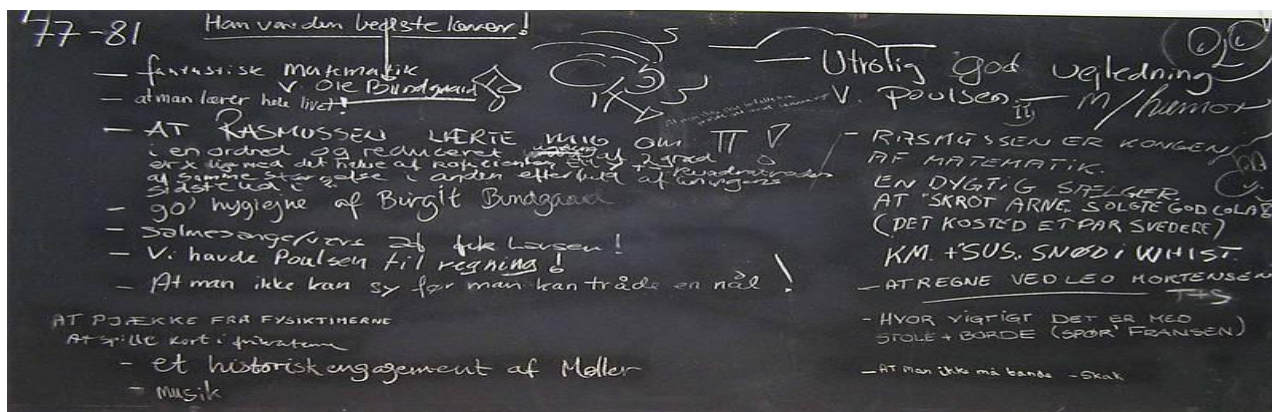 77-81
Han var den bedste lærer!
- fantastisk matematik
v. Ole Bundgaard
- at man lærer hele livet!
- AT RASMUSSEN LÆRTE MIG OM π ▽
i en ordnet og reduceret af 2 grad
er x lig med det halve af koficienten kvadratroden
af samme størrelse i anden efterfuld af ligningens
sidste ud i ?
- go' hygiejne af Birgit Bundgaard
- Salmesange/vers af fik Larsen!
- Vi havde Poulsen til regning!
- At man ikke kan sy før man kan tråde en nål!
AT PJÆKKE FRA FYSIKTIMERNE
At spille kort i frikvarterne
- et historisk engagement af Møller
- musik
Utrolig god vejledning
V. Poulsen - m/humor
- RASMUSSEN ER KONGEN
AF MATEMATIK.
EN DYGTIG SÆLGER.
AT "SKROT ARNE" SOLGTE GOD COLA
(DET KOSTED ET PAR SVEDERE)
KM. + SUS. SNØD I WHIST.
- AT REGNE VED LEO MORTENSEN
T+S
- HVOR VIGTIGT DET ER MED
STOLE + BORDE (SPØR' FRANSEN)
- AT man ikke må bande - Skak